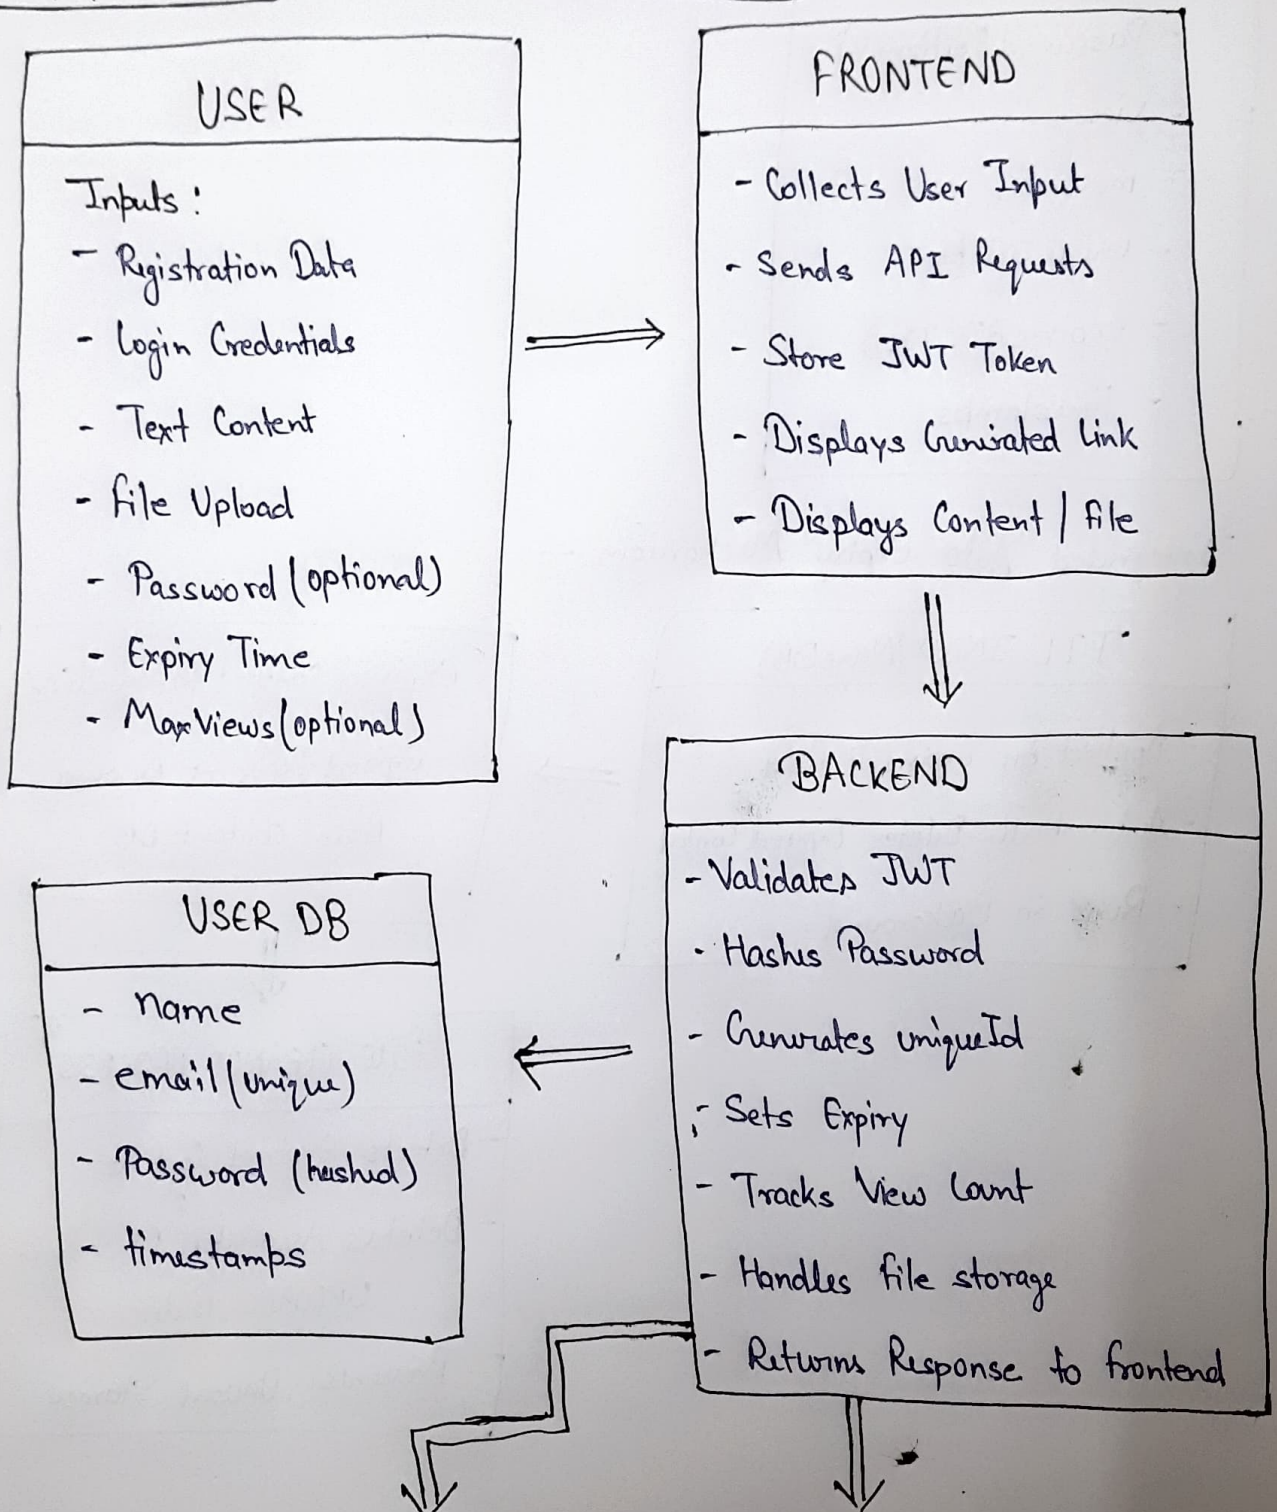 USER
Inputs:
- Registration Data
- Login Credentials
- Text Content
- File Upload
- Password (optional)
- Expiry Time
- MaxViews (optional)
FRONTEND
- Collects User Input
- Sends API Requests
- Store JWT Token
- Displays Generated Link
- Displays Content / File
BACKEND
- Validates JWT
- Hashes Password
- Generates uniqueId
- Sets Expiry
- Tracks View Count
- Handles file storage
- Returns Response to frontend
USER DB
- name
- email (unique)
- Password (hashed)
- timestamps